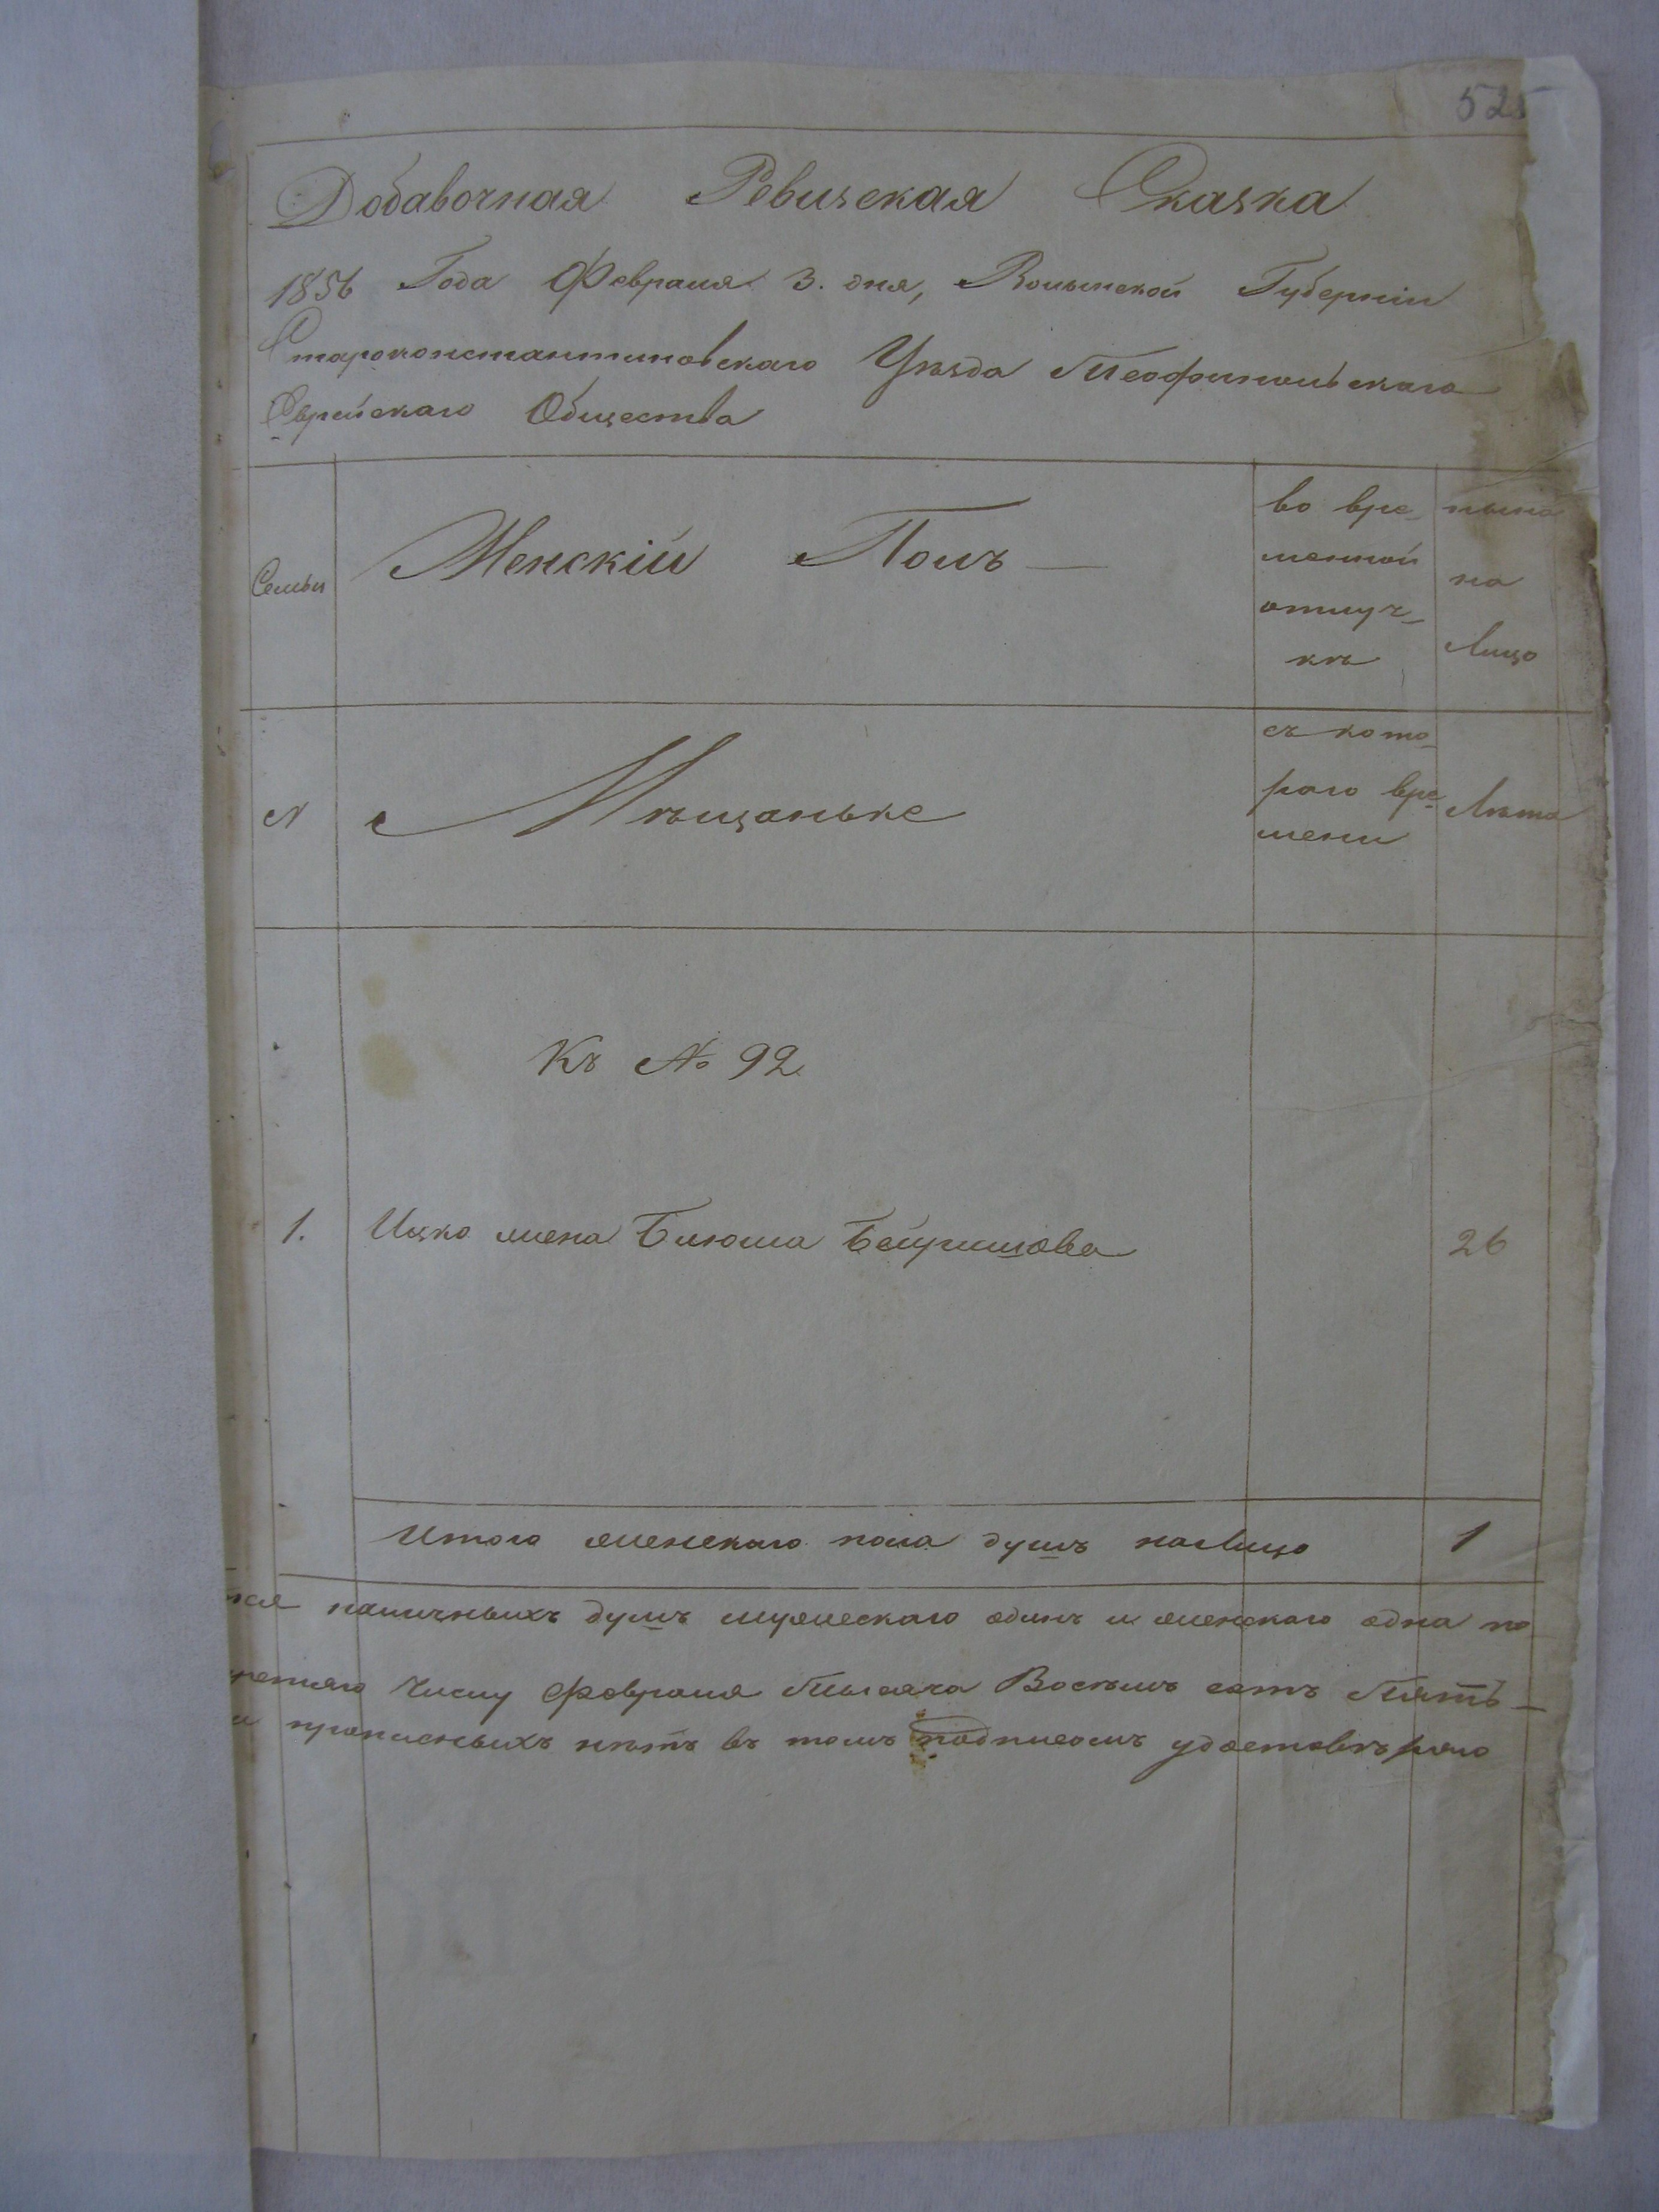 525
Добавочная Ревизская Сказка
1856 Года Февраля 3. дня, Волынской Губерніи
Староконстантиновскаго Уѣзда Теофипольскаго
Еврейскаго Общества
Семьи
Женскій Полъ
во вре-
менной
отлуч-
кѣ
ныне
на
Лицо
N
Мѣщаньке
съ кото-
раго вре-
мени
Лѣта
Къ № 92
1. Ицко жена Блюма Бейришова 26
Итого женскаго пола душъ налицо 1
наличныхъ душъ мужескаго одинъ и женскаго одна по
третяго числу февраля Тысяча Восѣмъ сотъ Пять-
и прописныхъ нѣтъ въ томъ подписомъ удостовѣряю